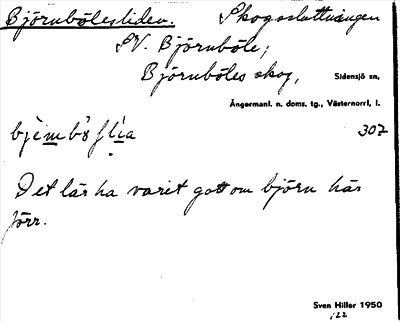 Björnbölesliden. Skogssluttningen
SV. Björnböle;
Björnböles skog, Sidensjö sn,
Ångermanl. n. doms. tg., Västernorrl. l.
307
Det lär ha varit gott om björn här
förr.
Sven Hiller 1950
122